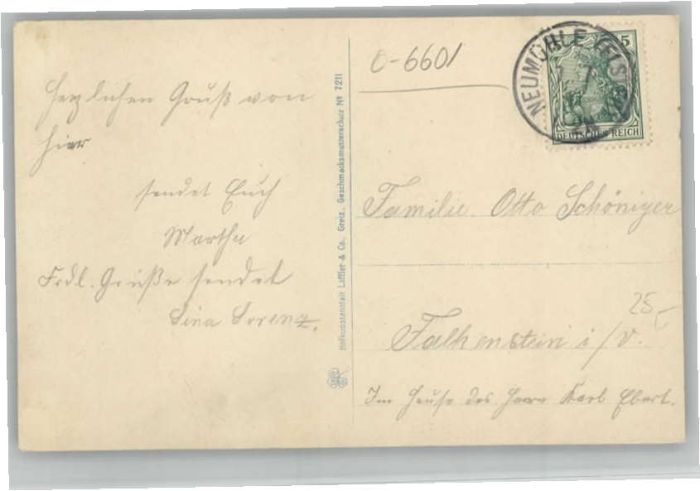 Herzlichen Gruß von
hier
sendet Euch
Martha
Frdl. Grüße sendet
Lina Lorenz.
Lichtkunstanstalt Löffler & Co. Greiz. Geschmacksmusterschutz № 7211
C-6601
NEUMÜHLE (ELSTER)
5
DEUTSCHES REICH
Familie Otto Schöniger
Falkenstein i/V.
Im Hause des Herrn Karl Ebert.
25,-